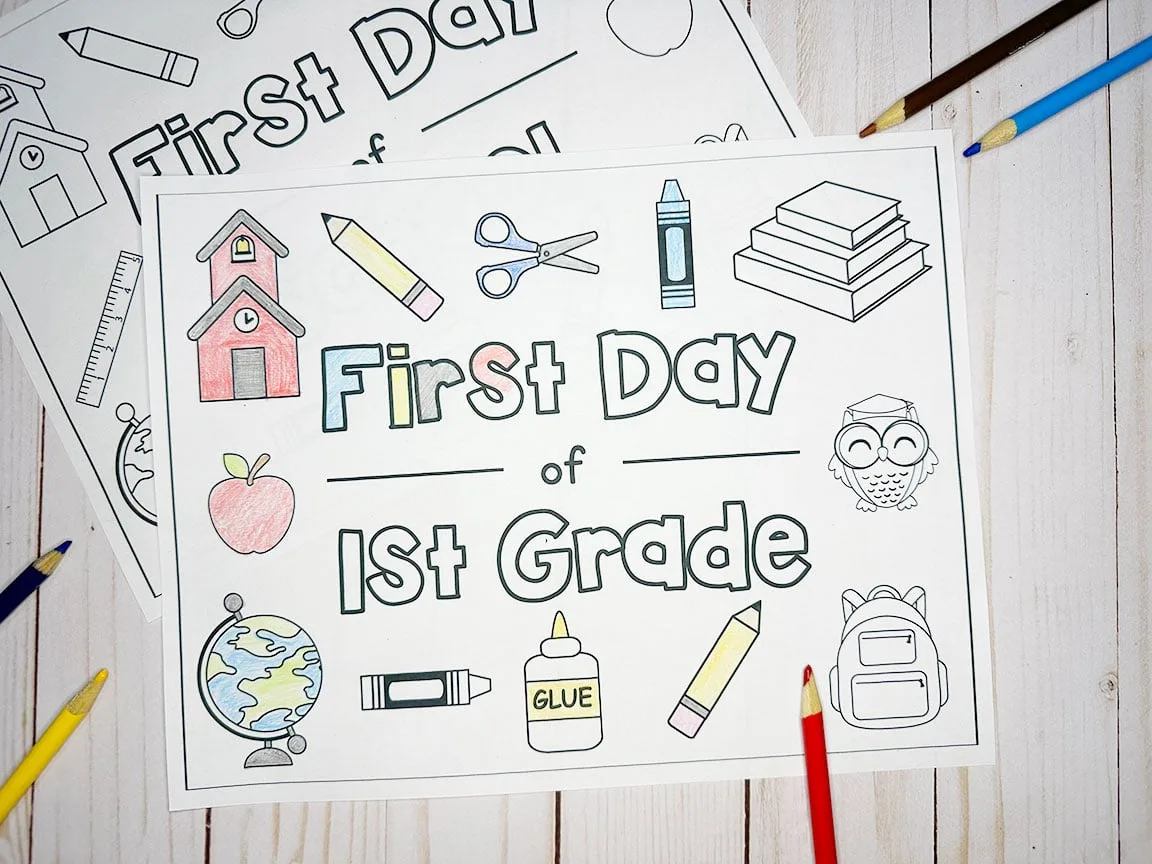 First Day
of
First Day
of
1st Grade
GLUE
5
4
3
2
1